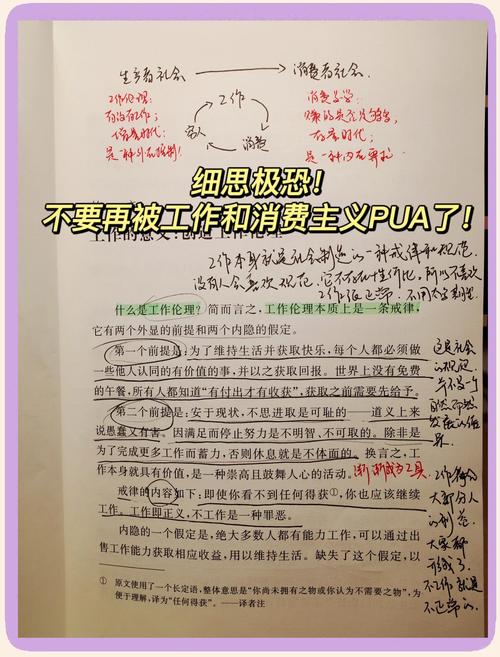 生产者社会 → 消费者社会.
工作伦理:
有没有工作;
是一种外在强制!
工作
穷人
消费
消费美学:
赚的是否足够多,
是一种内在
细思极恐!
不要再被工作和消费主义PUA了!
工作的意义:创造工作伦理
工作本身就是社会制造的一种戒律和规范
没有人会喜欢规范,它不存在性价比,所以不喜欢
工作很正常.不用太
什么是工作伦理?简而言之,工作伦理本质上是一条戒律,
它有两个外显的前提和两个内隐的假定。
第一个前提是:为了维持生活并获取快乐,每个人都必须做
一些他人认同的有价值的事,并以之获取回报。世界上没有免费
的午餐,所有人都知道“有付出才有收获”,获取之前需要先给予。
第二个前提是:安于现状、不思进取是可耻的——道义上来
说愚蠢又有害。因满足而停止努力是不明智、不可取的。除非是
为了完成更多工作而蓄力,否则休息就是不体面的。换言之,工
作本身就具有价值,是一种崇高且鼓舞人心的活动。
渐渐成为工具
戒律的内容如下:即使你看不到任何得获①,你也应该继续
工作。工作即正义,不工作是一种罪恶。
内隐的一个假定是,绝大多数人都有能力工作,可以通过出
售工作能力获取相应收益,用以维持生活。缺失了这个假定,以
① 原文使用了一个长定语,整体意思是“你尚未拥有之物或你认为不需要之物”,为
便于理解,译为“任何得获”。——译者注
这是社会
的规范
并不是一个
自然而然
界.
工作
大部分人
的
大家都
不工作就是
不正常的.